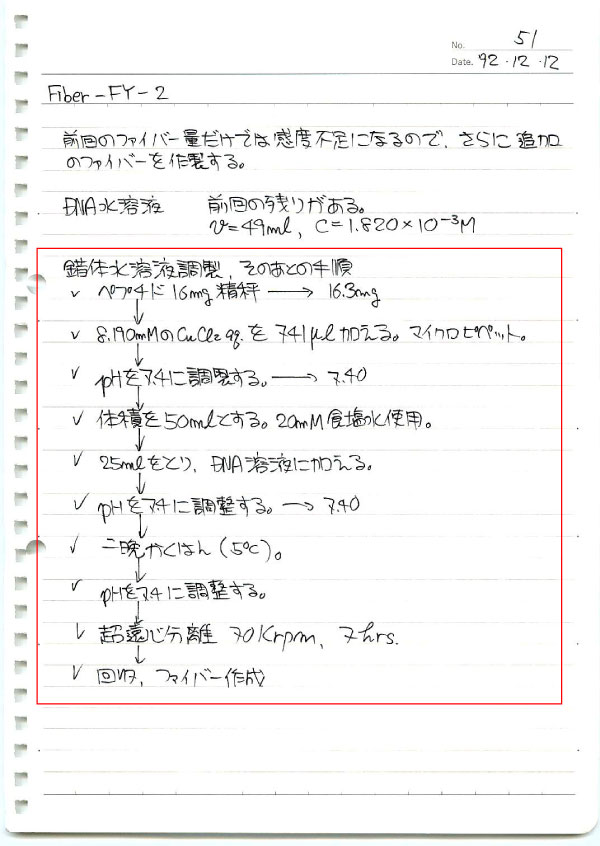 No. 51
Date. '92・12・12
Fiber-FY-2
前回のファイバー量だけでは感度不足になるので、さらに追加
のファイバーを作製する。
DNA水溶液 前回の残りがある。
v=49ml, C=1.820×10⁻³M
錯体水溶液調製、そのあとの手順
✓ ペプチド16mg精秤 → 16.3mg
↓
✓ 8.190mMのCuCl2 aq.を741μl加える。マイクロピペット。
↓
✓ pHを7.4に調製する。→ 7.40
↓
✓ 体積を50mlとする。20mM食塩水使用。
↓
✓ 25mlをとり、DNA溶液に加える。
↓
✓ pHを7.4に調整する。→ 7.40
↓
✓ 二晩かくはん(5℃)。
↓
✓ pHを7.4に調整する。
↓
✓ 超遠心分離 70Krpm, 7hrs.
↓
✓ 回収、ファイバー作成